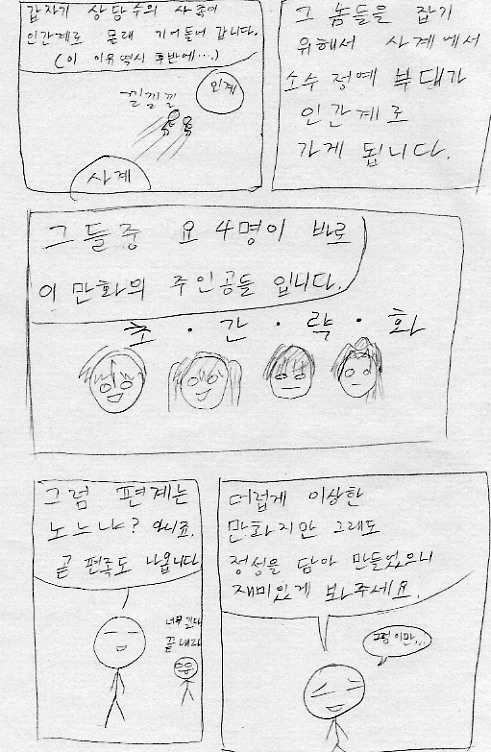 갑자기 상당수의 사족이
인간계로 몰래 기어들어 갑니다.
(이 이유역시 후반에...)
낄낄낄
인계
사계
그 놈들을 잡기
위해서 사계에서
소수 정예 부대가
인간계로
가게 됩니다.
그들중 요 4명이 바로
이 만화의 주인공들 입니다.
초·간·략·화
그럼 편계는
노느냐? 아니죠.
곧 편족도 나옵니다
너무 길다
끝내라
더럽게 이상한
만화지만 그래도
정성을 담아 만들었으니
재미있게 봐주세요.
그럼 이만...